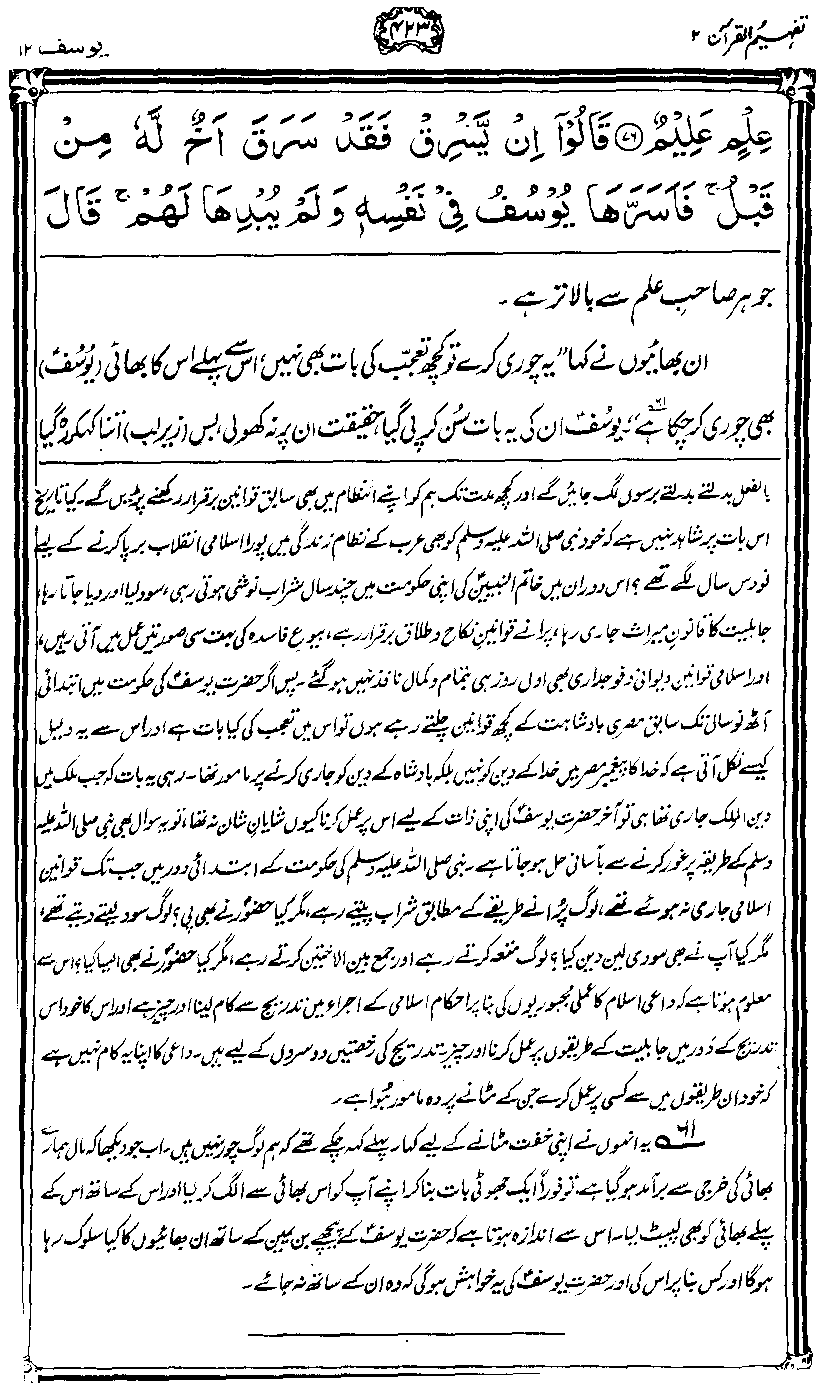 تفہیم القرآن ۲
۴۲۳
یوسف ۱۲
عِلْمٍ عَلِیْمٌ ﴿۷۶﴾ قَالُوْۤا اِنْ یَّسْرِقْ فَقَدْ سَرَقَ اَخٌ لَّهٗ مِنْ
قَبْلُ ۚ فَاَسَرَّهَا یُوْسُفُ فِیْ نَفْسِهٖ وَلَمْ یُبْدِهَا لَهُمْ ۚ قَالَ
جو ہر صاحبِ علم سے بالاتر ہے۔
ان بھائیوں نے کہا ”یہ چوری کرے تو کچھ تعجب کی بات بھی نہیں، اس سے پہلے اس کا بھائی (یُوسُفؑ)
بھی چوری کر چکا ہے“۔ ۶۱ یوسُفؑ ان کی یہ بات سُن کر پی گیا، حقیقت ان پر نہ کھولی، بس (زیرِلب) اتنا کہہ کر رہ گیا
بالفعل بدلتے بدلتے برسوں لگ جائیں گے اور کچھ مدت تک ہم کو اپنے انتظام میں بھی سابق قوانین برقرار رکھنے پڑیں گے۔ کیا تاریخ
اس بات پر شاہد نہیں ہے کہ خود نبی صلی اللہ علیہ وسلم کو بھی عرب کے نظامِ زندگی میں پورا اسلامی انقلاب برپا کرنے کے لیے
نو دس سال لگے تھے؟ اس دوران میں خاتم النبیینؐ کی اپنی حکومت میں چند سال شراب نوشی ہوتی رہی، سود لیا اور دیا جاتا رہا،
جاہلیت کا قانونِ میراث جاری رہا، پرانے قوانینِ نکاح و طلاق برقرار رہے، بیوعِ فاسدہ کی بہت سی صورتیں عمل میں آتی رہیں،
اور اسلامی قوانین دیوانی و فوجداری بھی اول روز ہی بتمام و کمال نافذ نہیں ہو گئے۔ پس اگر حضرت یوسفؑ کی حکومت میں ابتدائی
آٹھ نو سال تک سابق مصری بادشاہت کے کچھ قوانین چلتے رہے ہوں تو اس میں تعجب کی کیا بات ہے اور اس سے یہ دلیل
کیسے نکل آتی ہے کہ خدا کا پیغمبر مصر میں خدا کے دین کو نہیں بلکہ بادشاہ کے دین کو جاری کرنے پر مامور تھا۔ رہی یہ بات کہ جب ملک میں
دین الملک جاری تھا ہی تو آخر حضرت یوسفؑ کی اپنی ذات کے لیے اس پر عمل کرنا کیوں شایانِ شان نہ تھا، تو یہ سوال بھی نبی صلی اللہ علیہ
وسلم کے طریقہ پر غور کرنے سے بآسانی حل ہو جاتا ہے۔ نبی صلی اللہ علیہ وسلم کی حکومت کے ابتدائی دور میں جب تک قوانین
اسلامی جاری نہ ہوئے تھے، لوگ پُرانے طریقے کے مطابق شراب پیتے رہے، مگر کیا حضورؐ نے بھی پی؟ لوگ سود لیتے دیتے تھے،
مگر کیا آپ نے بھی سودی لین دین کیا؟ لوگ متعہ کرتے رہے اور جمع بین الاختین کرتے رہے، مگر کیا حضورؐ نے بھی ایسا کیا؟ اس سے
معلوم ہوتا ہے کہ داعیٔ اسلام کا عملی مجبوریوں کی بنا پر احکامِ اسلامی کے اجراء میں تدریج سے کام لینا اور چیز ہے اور اس کا خود اس
تدریج کے دَور میں جاہلیت کے طریقوں پر عمل کرنا اور چیز۔ تدریج کی رخصتیں دوسروں کے لیے ہیں۔ داعی کا اپنا یہ کام نہیں ہے
کہ خود ان طریقوں میں سے کسی پر عمل کرے جن کے مٹانے پر وہ مامور ہُوا ہے۔
۶۱ یہ انہوں نے اپنی خفت مٹانے کے لیے کہا۔ پہلے کہہ چکے تھے کہ ہم لوگ چور نہیں ہیں۔ اب جو دیکھا کہ مال ہمارے
بھائی کی خرجی سے برآمد ہو گیا ہے، تو فوراً ایک جھوٹی بات بنا کر اپنے آپ کو اس بھائی سے الگ کر لیا اور اس کے ساتھ اس کے
پہلے بھائی کو بھی لپیٹ لیا۔ اس سے اندازہ ہوتا ہے کہ حضرت یوسفؑ کے پیچھے بن یمین کے ساتھ ان بھائیوں کا کیا سلوک رہا
ہوگا اور کس بنا پر اس کی اور حضرت یوسفؑ کی یہ خواہش ہوگی کہ وہ ان کے ساتھ نہ جائے۔